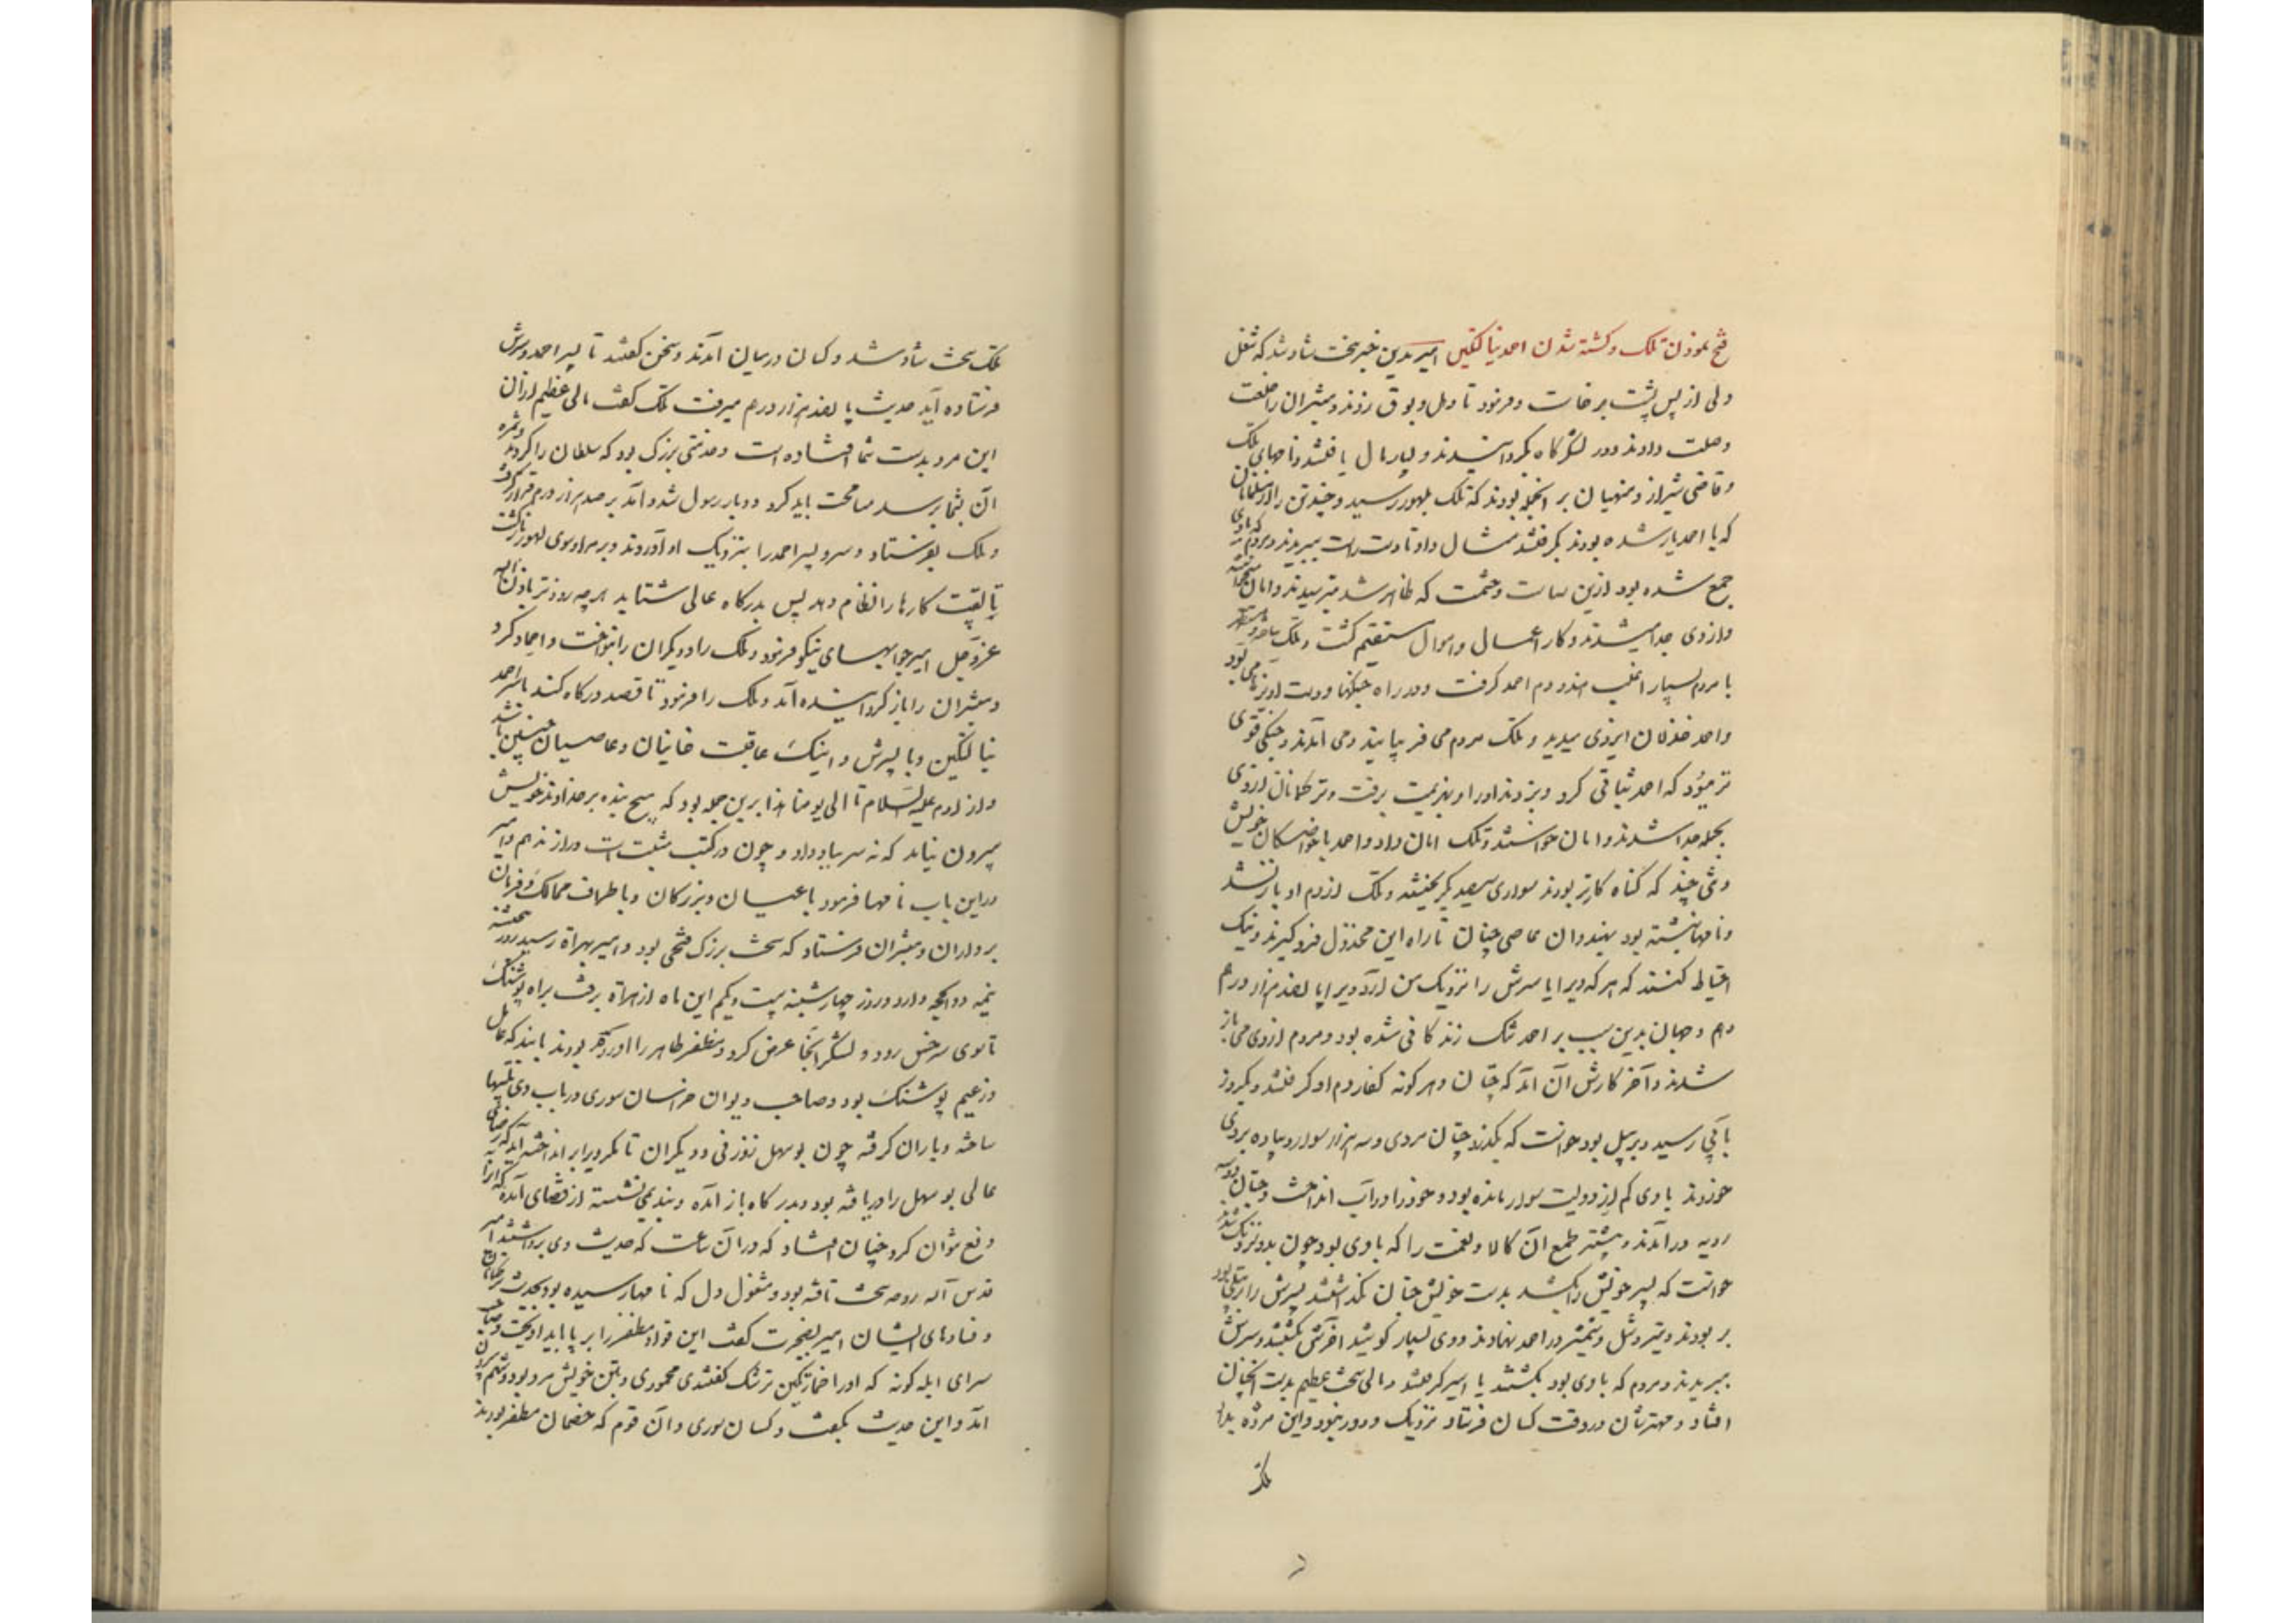 فتح نمودن تلک و کشته شدن احمد نیالتکین امیر بدین خبر سخت شاد شد که شغل
دلی از پس پشت برخاست و فرمود تا دهل و بوق زدند و مبشران را خلعت
و صلت دادند و در لشکرگاه بگردانیدند و بسیار مال یافتند و نامهای تلک
و قاضی شیراز و منهیان بر انجمله بودند که تلک بلهور رسید و چند تن را از مسلمانان
که با احمد یار شده بودند بگرفتند مثال داد تا دست راست ببریدند و مردم که با وی
جمع شده بود ازین سیاست و حشمت که ظاهر شد بترسیدند و امان میخواستند
و از وی جدا میشدند و کار اعمال و اموال مستقیم گشت و تلک ساخته و مستظهر
با مردم بسیار اغلب هندو دم احمد گرفت و در راه جنگها و دست آویزها می بود
و احمد خذلان ایزدی میدید و تلک مردم می فریبانید و می آمدند و جنگی قوی
تر میبود که احمد ثباتی کرد و بزدند او را و بهزیمت برفت و ترکمانان از وی
بجمله جدا شدند و امان خواستند و تلک امان داد و احمد با خواصگان خویش
و تنی چند که گناه کارتر بودند سواری سیصد بگریختند و تلک از دم او باز نشد
و نامها نبشته بود بهندوان عاصی جتان تا راه این مخذول فرو گیرند و نیک
احتیاط کنند که هر که ویرا یا سرش را نزدیک من آرد ویرا پانصد هزار درم
دهم و جهان بدین سبب بر احمد تنک زندگانی شده بود و مردم از وی می باز
شدند و آخر کارش آن آمد که جتان و هر گونه کفار دم او گرفتند و یکروز
بآبی رسید و بر پیل بود خواست که بگذرد جتان مردی دو سه هزار سوار و پیاده بر وی
خوردند با وی کم از دویست سوار مانده بود و خود را در آب انداخت و جتان دو سه
رویه در آمدند و بیشتر طمع آن کالا و نعمت را که با وی بود چون بدو نزدیک شدند
خواست که پسر خویش را بکشد بدست خویش جتان نگذاشتند پسرش را بر پیلی بود
بربودند و تیر و شل و شمشیر در احمد نهادند و وی بسیار کوشید آخرش بکشتند و سرش
ببریدند و مردم که با وی بود بکشتند یا اسیر گرفتند و مالی سخت عظیم بدست آنجتان
افتاد و مهترشان در وقت کسان فرستاد نزدیک و دور نبود و این مژده بداد
تلک
تلک سخت شاد شد و کسان در میان آمدند و سخن گفتند تا پسر احمد و سرش
فرستاده آید حدیث پانصد هزار درم میرفت تلک گفت مالی عظیم از آن
این مرد بدست شما افتاده است و خدمتی بزرک بود که سلطان را کردید و ثمره
آن بشما برسد مسامحت باید کرد دو بار رسول شد و آمد بر صد هزار درم قرار گرفت
و تلک بفرستاد و سر و پسر احمد را بنزدیک او آوردند و بر مراد سوی لهور بازگشت
تا بقیت کارها را نظام دهد پس بدرگاه عالی شتابد هر چه زودتر باذن الله
عز و جل امیر جوابهای نیکو فرمود و تلک را و دیگران را بنواخت و احماد کرد
و مبشران را باز گردانیده آمد و تلک را فرمود تا قصد درگاه کند با سر احمد
نیالتکین و با پسرش و اینک عاقبت خاینان و عاصیان چنین باشد
و از آدم علیه السلام تا الی یومنا هذا برین جمله بود که هیچ بنده بر خداوند خویش
بیرون نیامد که نه سر بباد داد و چون در کتب مثبت است دراز ندهم و امیر
در این باب نامها فرمود باعیان و بزرکان و باطراف ممالک و فرمان
برداران و مبشران فرستاد که سخت بزرک فتحی بود و امیر بهراة رسید روز پنجشنبه
نیمه ذوالحجه وارد و روز چهارشنبه بیست و یکم این ماه از هراة برفت براه پوشنک
تا سوی سرخس رود و لشکر آنجا عرض کرد و مظفر طاهر را آورده بودند با بند که عامل
و زعیم پوشنک بود و صاحب دیوان خراسان سوری در باب وی تلبیسها
ساخته و یاران گرفته چون بوسهل زوزنی و دیگران تا مگر ویرا بر انداخته آید که رضای
عالی بوسهل را دریافته بود و بدرگاه باز آمده و بندیمی نشسته از قضای آمده که آنرا
دفع نتوان کرد چنان افتاد که در آن ساعت که حدیث وی برداشتند امیر
قدس الله روحه سخت تافته بود و مشغول دل که نامها رسیده بود بحدیث ترکمانان
و فسادهای ایشان امیر بضجرت گفت این قواد مظفر را بر باید آویخت و حاجب
سرای ابله گونه که او را خمارتکین ترشک گفتندی محمودی و بتن خویش مرد بود و شهم بیرون
آمد و این حدیث بگفت و کسان سوری و آن قوم که خصمان مظفر بودند